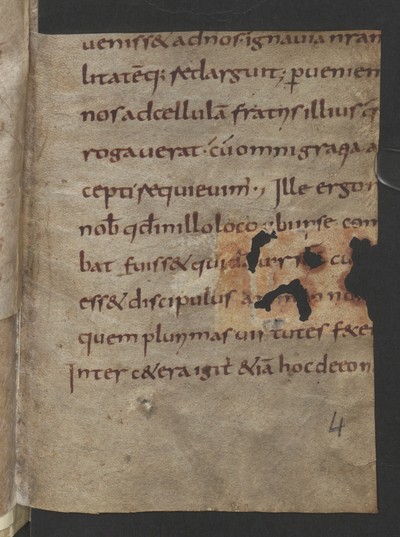 uenisset adnos· ignauia nran
litatēq; & largit; puenien
nos adcellulā fratris illius q
rogauerat· cū omni gratia a
cepti & quieuim; Ille ergo
nob qd inillo loco
bat fuisset qui
esset discipulus
quem plurimas uirtutes fece
Inter cetera igit etiā hoc de eo n
4